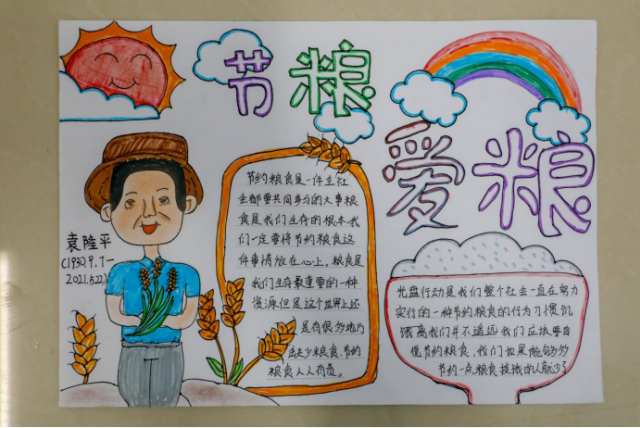 节粮
爱粮
袁隆平
(1930.9.7—
2021.5.22)
节约粮食是一件全社
会都要共同参与的大事粮
食是我们生存的根本我
们一定要将节约粮食这
件事情放在心上。粮食是
我们生存最重要的一种
资源但是这个世界上还
是有很多地方
缺少粮食.节约
粮食人人有责。
光盘行动是我们整个社会一直在努力
实行的一种节约粮食的行为习惯饥
饿离我们并不遥远我们应该要自
觉节约粮食,我们也是能够多多
节约一点粮食挨饿的人就少了